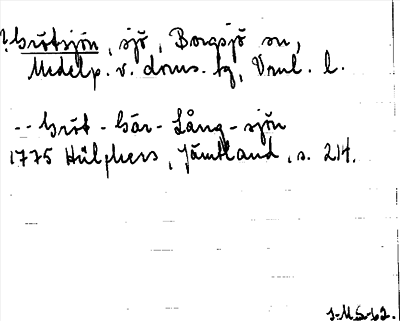 ? Grötsjön, sjö, Borgsjö sn,
Medelp. v. doms. tg, Vnrl. l.
-- Gröt - Gär - Lång - sjön
1775 Hülphers, Jämtland, s. 214.
J-M.S-62.